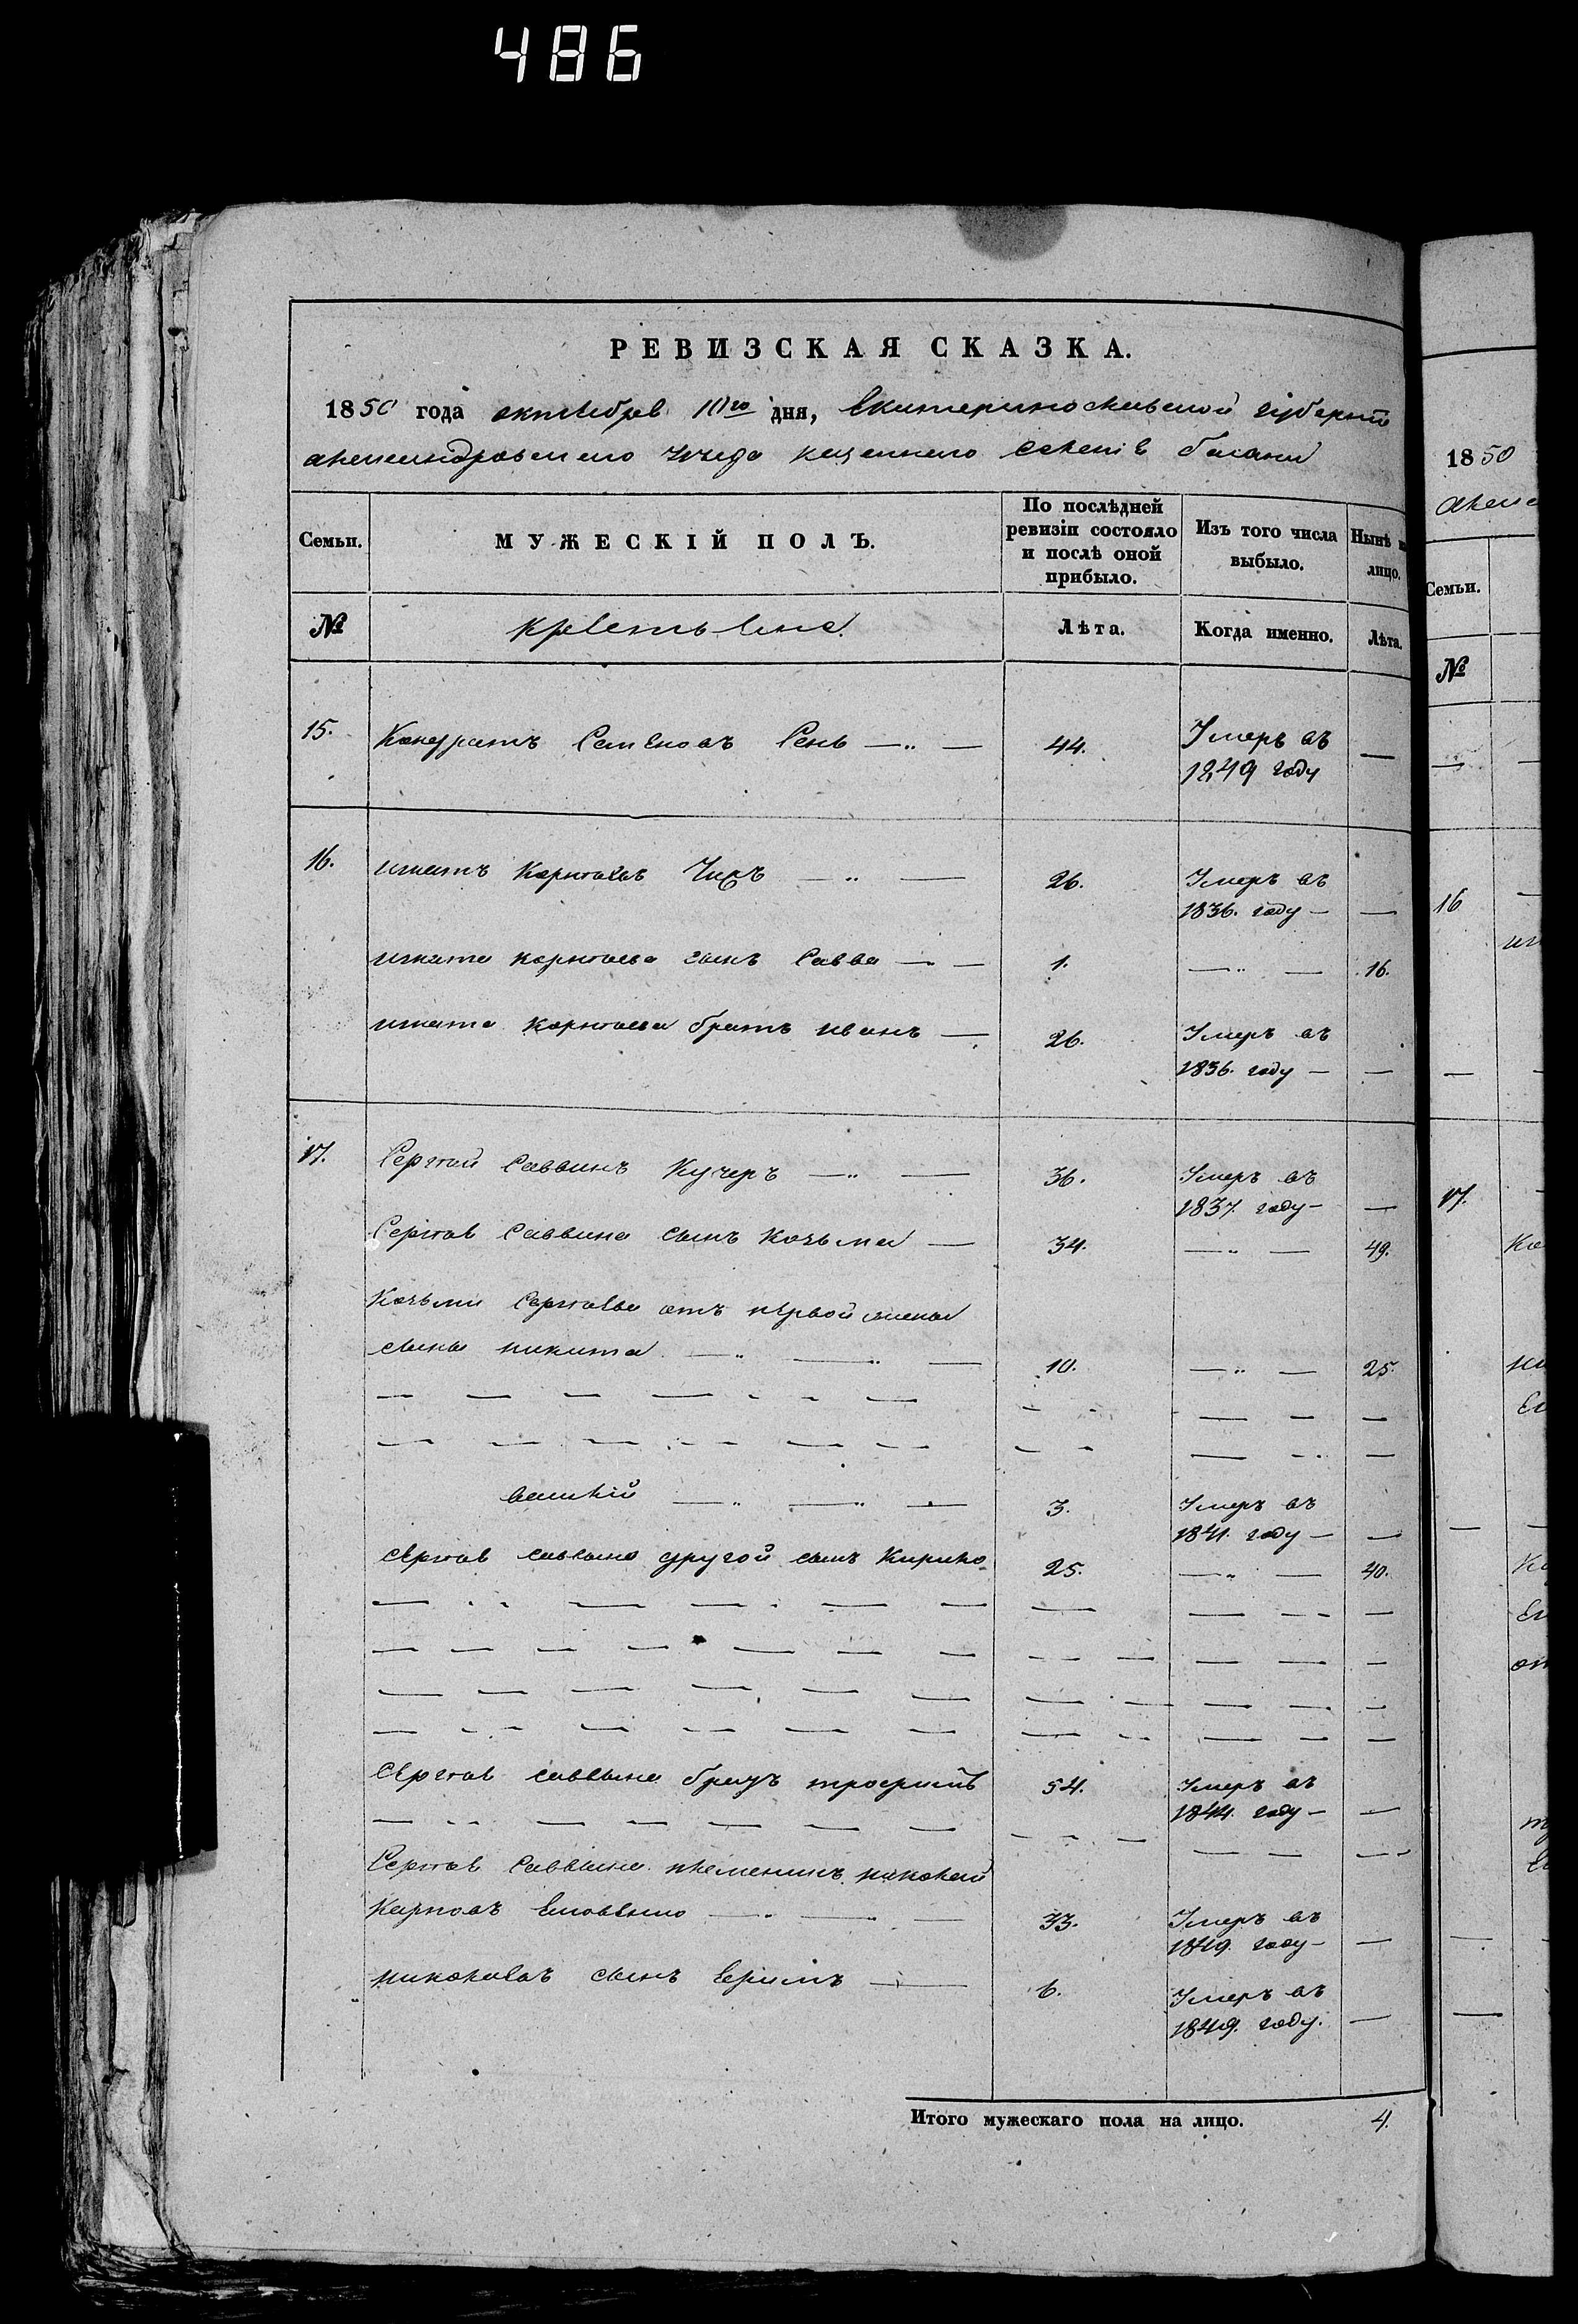 486
РЕВИЗСКАЯ СКАЗКА.
1850 года октября 10го дня, Екатеринославской губернии
александровского уезда казенного селенія
Семьи.
МУЖЕСКІЙ ПОЛЪ.
По послѣдней ревизіи состояло и послѣ оной прибыло.
Изъ того числа выбыло.
Нынѣ на лицо.
№
крестьяне.
Лѣта.
Когда именно.
Лѣта.
15. Кондратъ Семеновъ Сень — „ — 44. Умеръ въ
1849 году —
16. игнатъ Корнѣевъ Чиръ — „ — 26. Умеръ въ
1836. году — —
игната корнѣева сынъ Савва — „ — 1. — „ — 16.
игната корнѣева братъ иванъ — 26. Умеръ въ
1836. году — —
17. Сергѣй Саввинъ Кучеръ — „ — 36. Умеръ въ
1837. году — —
Сергѣя Саввина сынъ козьма — 34. — „ — 49.
Козьмы Сергѣева отъ первой жены
сыны никита — „ — „ — 10. — „ — 25.
василій — „ — „ — 3. Умеръ въ
1841. году — —
сергѣя саввина другой сынъ Кирило 25. — „ — 40.
сергѣя саввина братъ трофимъ 54. Умеръ въ
1844. году — —
Сергѣя Саввина племенникъ николай
Карповъ 33. Умеръ въ
1849. году — —
николаевъ сынъ ефимъ — 6. Умеръ въ
1849. году. —
Итого мужескаго пола на лицо. 4.
1850
алекс
Семьи.
№
16
17.